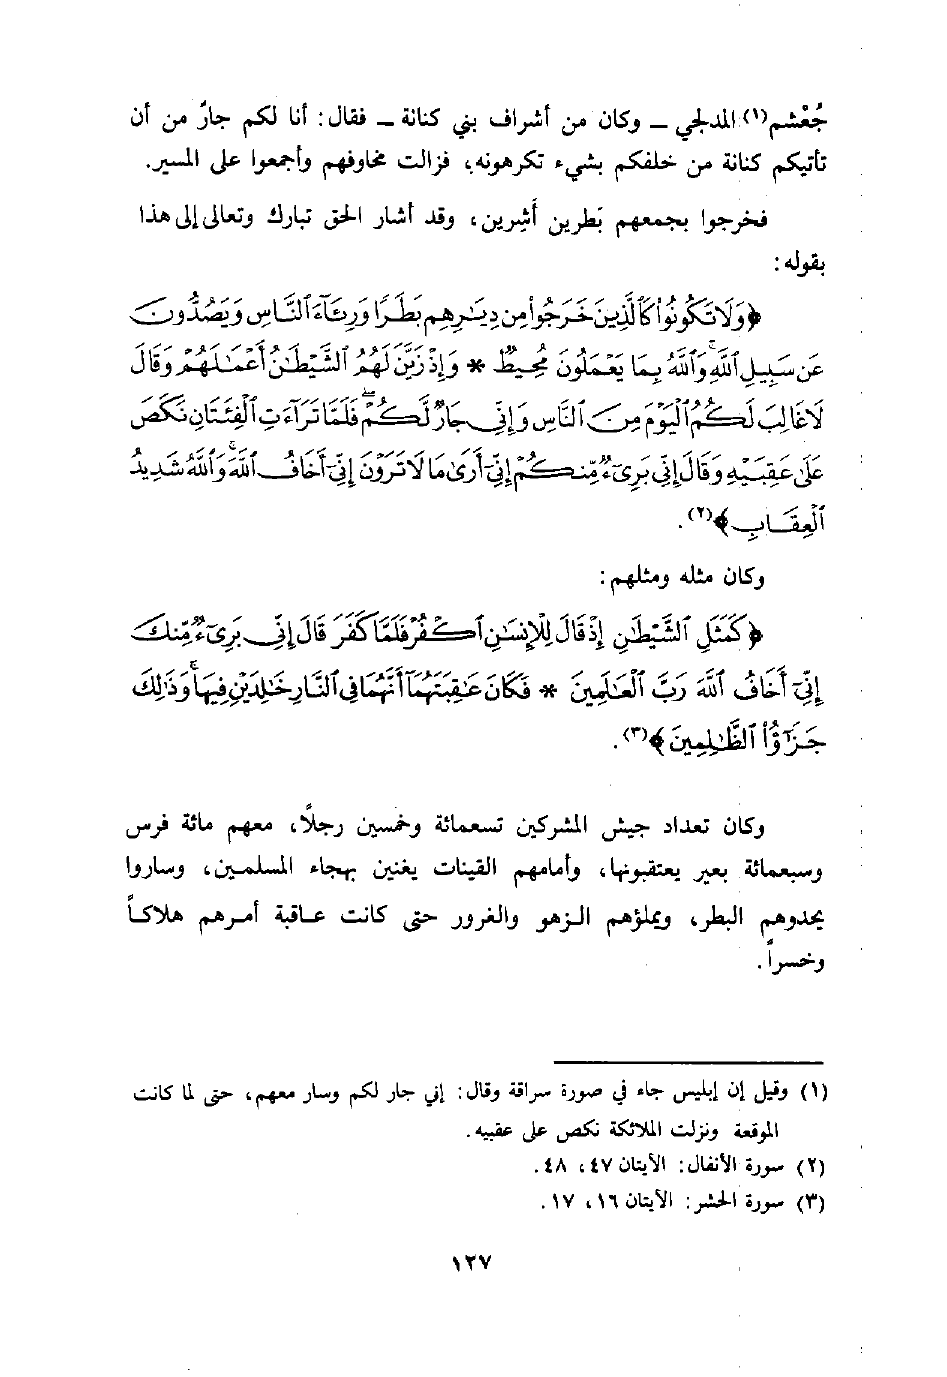 جُعْشم(١) المدلجي ــ وكان من أشراف بني كنانة ــ فقال: أنا لكم جارٌ من أن
تأتيكم كنانة من خلفكم بشيء تكرهونه، فزالت مخاوفهم وأجمعوا على المسير.
فخرجوا بجمعهم بَطرين أَشِرين، وقد أشار الحق تبارك وتعالى إلى هذا
بقوله:
﴿وَلَا تَكُونُوا۟ كَٱلَّذِينَ خَرَجُوا۟ مِن دِيَـٰرِهِم بَطَرًا وَرِئَآءَ ٱلنَّاسِ وَيَصُدُّونَ
عَن سَبِيلِ ٱللَّهِ ۚ وَٱللَّهُ بِمَا يَعْمَلُونَ مُحِيطٌ * وَإِذْ زَيَّنَ لَهُمُ ٱلشَّيْطَـٰنُ أَعْمَـٰلَهُمْ وَقَالَ
لَا غَالِبَ لَكُمُ ٱلْيَوْمَ مِنَ ٱلنَّاسِ وَإِنِّى جَارٌ لَّكُمْ ۖ فَلَمَّا تَرَآءَتِ ٱلْفِئَتَانِ نَكَصَ
عَلَىٰ عَقِبَيْهِ وَقَالَ إِنِّى بَرِىٓءٌ مِّنكُمْ إِنِّىٓ أَرَىٰ مَا لَا تَرَوْنَ إِنِّىٓ أَخَافُ ٱللَّهَ ۚ وَٱللَّهُ شَدِيدُ
ٱلْعِقَابِ﴾(٢).
وكان مثله ومثلهم:
﴿كَمَثَلِ ٱلشَّيْطَـٰنِ إِذْ قَالَ لِلْإِنسَـٰنِ ٱكْفُرْ فَلَمَّا كَفَرَ قَالَ إِنِّى بَرِىٓءٌ مِّنكَ
إِنِّىٓ أَخَافُ ٱللَّهَ رَبَّ ٱلْعَـٰلَمِينَ * فَكَانَ عَـٰقِبَتَهُمَآ أَنَّهُمَا فِى ٱلنَّارِ خَـٰلِدَيْنِ فِيهَا ۚ وَذَٰلِكَ
جَزَٰٓؤُا۟ ٱلظَّـٰلِمِينَ﴾(٣).
وكان تعداد جيش المشركين تسعمائة وخمسين رجلًا، معهم مائة فرس
وسبعمائة بعير يعتقبونها، وأمامهم القينات يغنين بهجاء المسلمين، وساروا
يحدوهم البطر، ويملؤهم الزهو والغرور حتى كانت عاقبة أمرهم هلاكاً
وخسراً.
(١) وقيل إن إبليس جاء في صورة سراقة وقال: إني جار لكم وسار معهم، حتى لما كانت
الموقعة ونزلت الملائكة نكص على عقبيه.
(٢) سورة الأنفال: الآيتان ٤٧، ٤٨.
(٣) سورة الحشر: الآيتان ١٦، ١٧.
١٢٧